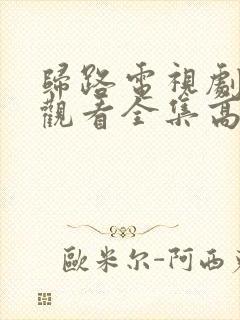 歸路電視劇
觀看全集高
歐米尔-阿西